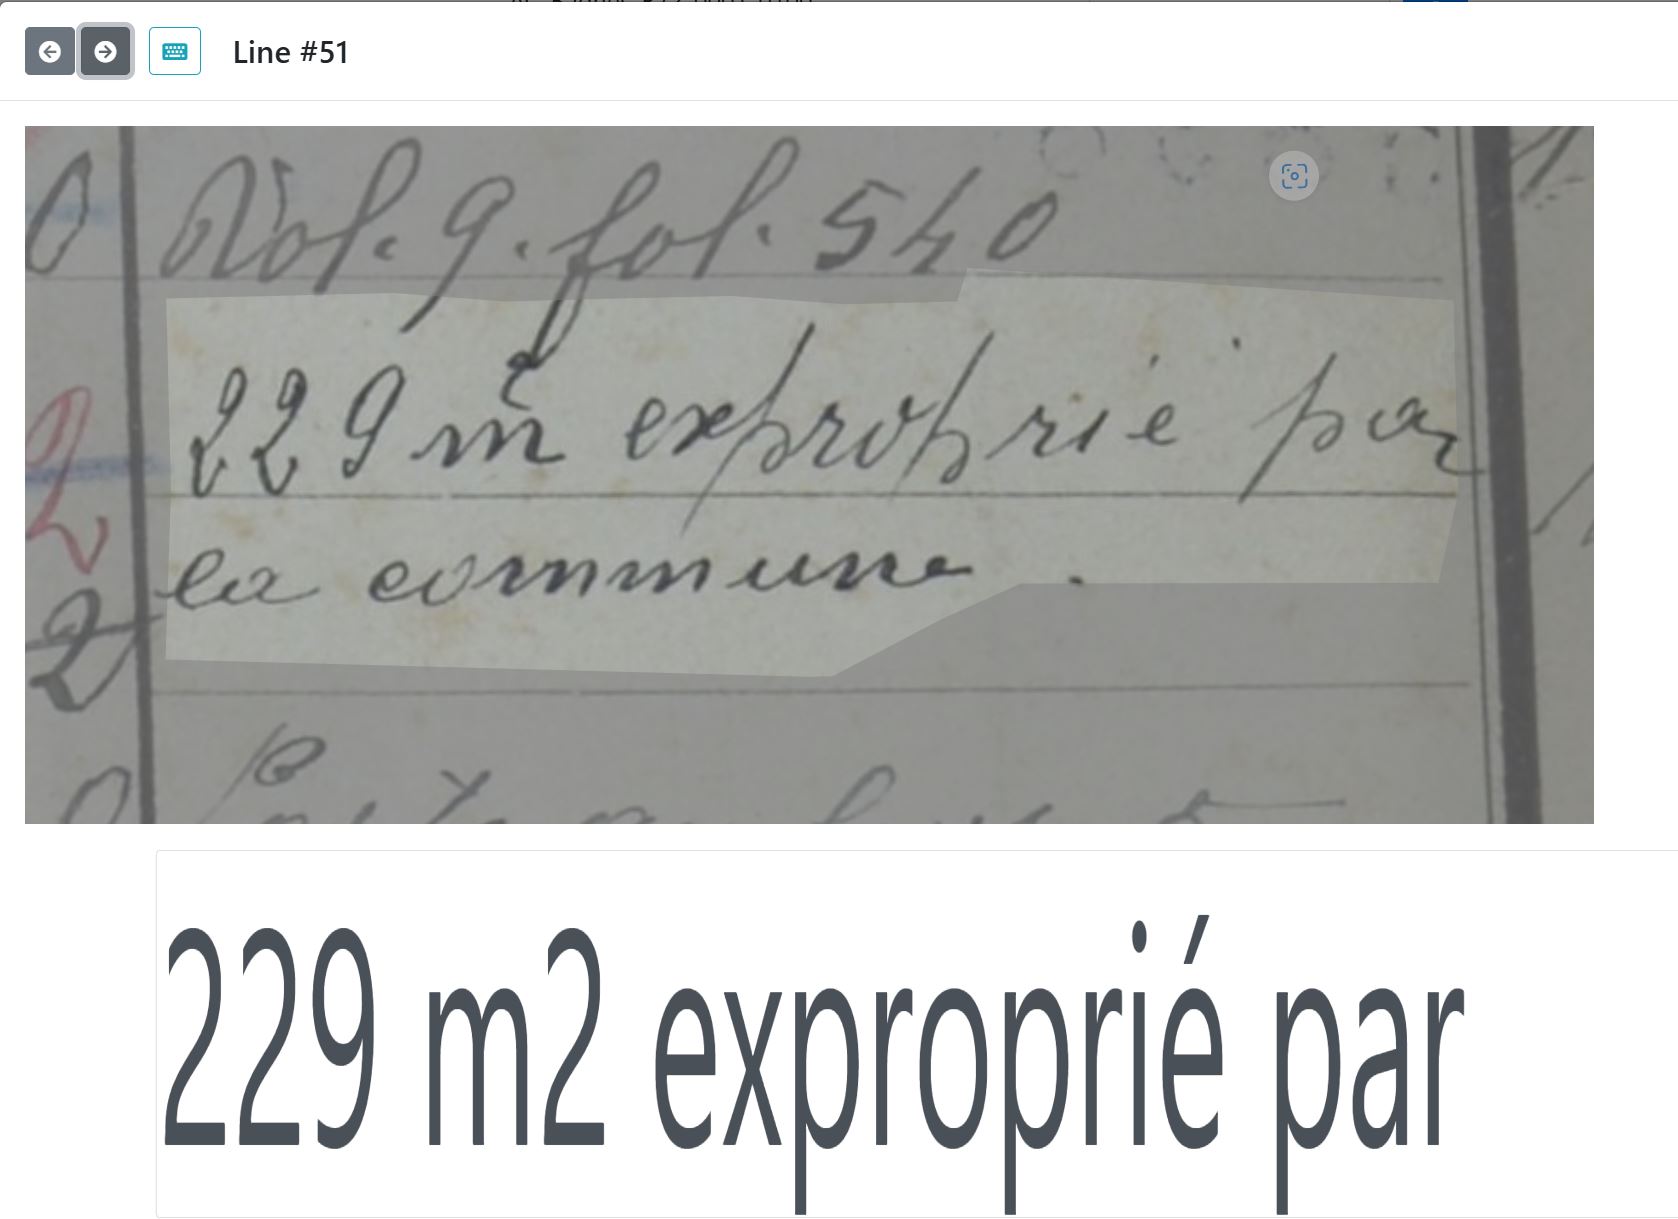 Line #51
Vol. 9. fol. 540
229 m² exproprié par
la commune.
229 m2 exproprié par